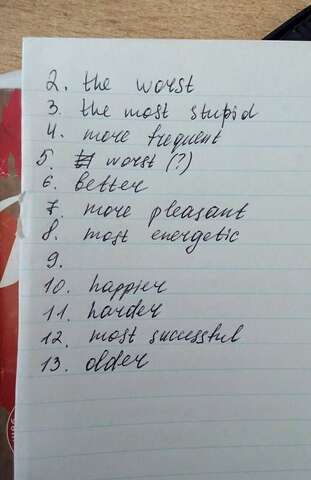 2. the worst
3. the most stupid
4. more frequent
5. worst (?)
6. better
7. more pleasant
8. most energetic
9.
10. happier
11. harder
12. most successful
13. older